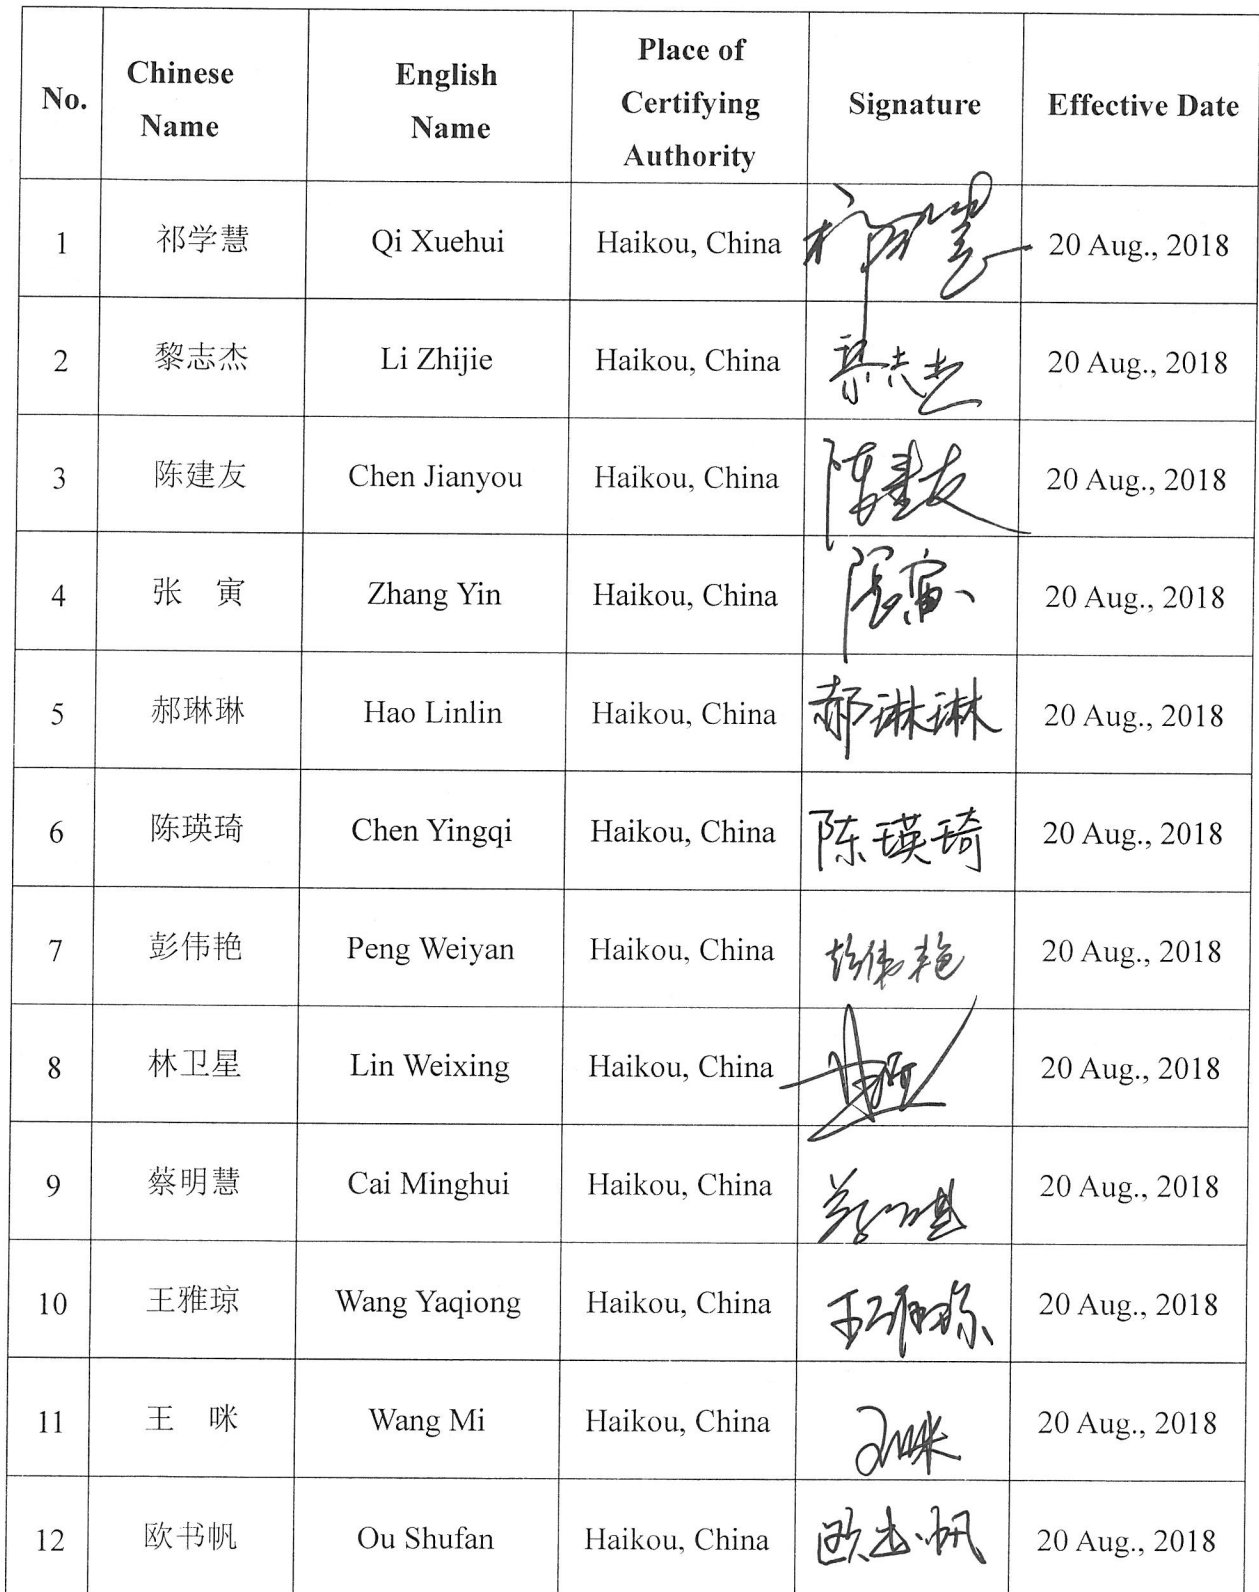 No. Chinese Name English Name Place of Certifying Authority Signature Effective Date
1 祁学慧 Qi Xuehui Haikou, China 20 Aug., 2018
2 黎志杰 Li Zhijie Haikou, China 黎志杰 20 Aug., 2018
3 陈建友 Chen Jianyou Haikou, China 陈建友 20 Aug., 2018
4 张 寅 Zhang Yin Haikou, China 张寅 20 Aug., 2018
5 郝琳琳 Hao Linlin Haikou, China 郝琳琳 20 Aug., 2018
6 陈瑛琦 Chen Yingqi Haikou, China 陈瑛琦 20 Aug., 2018
7 彭伟艳 Peng Weiyan Haikou, China 彭伟艳 20 Aug., 2018
8 林卫星 Lin Weixing Haikou, China 20 Aug., 2018
9 蔡明慧 Cai Minghui Haikou, China 20 Aug., 2018
10 王雅琼 Wang Yaqiong Haikou, China 王雅琼 20 Aug., 2018
11 王 咪 Wang Mi Haikou, China 王咪 20 Aug., 2018
12 欧书帆 Ou Shufan Haikou, China 欧书帆 20 Aug., 2018